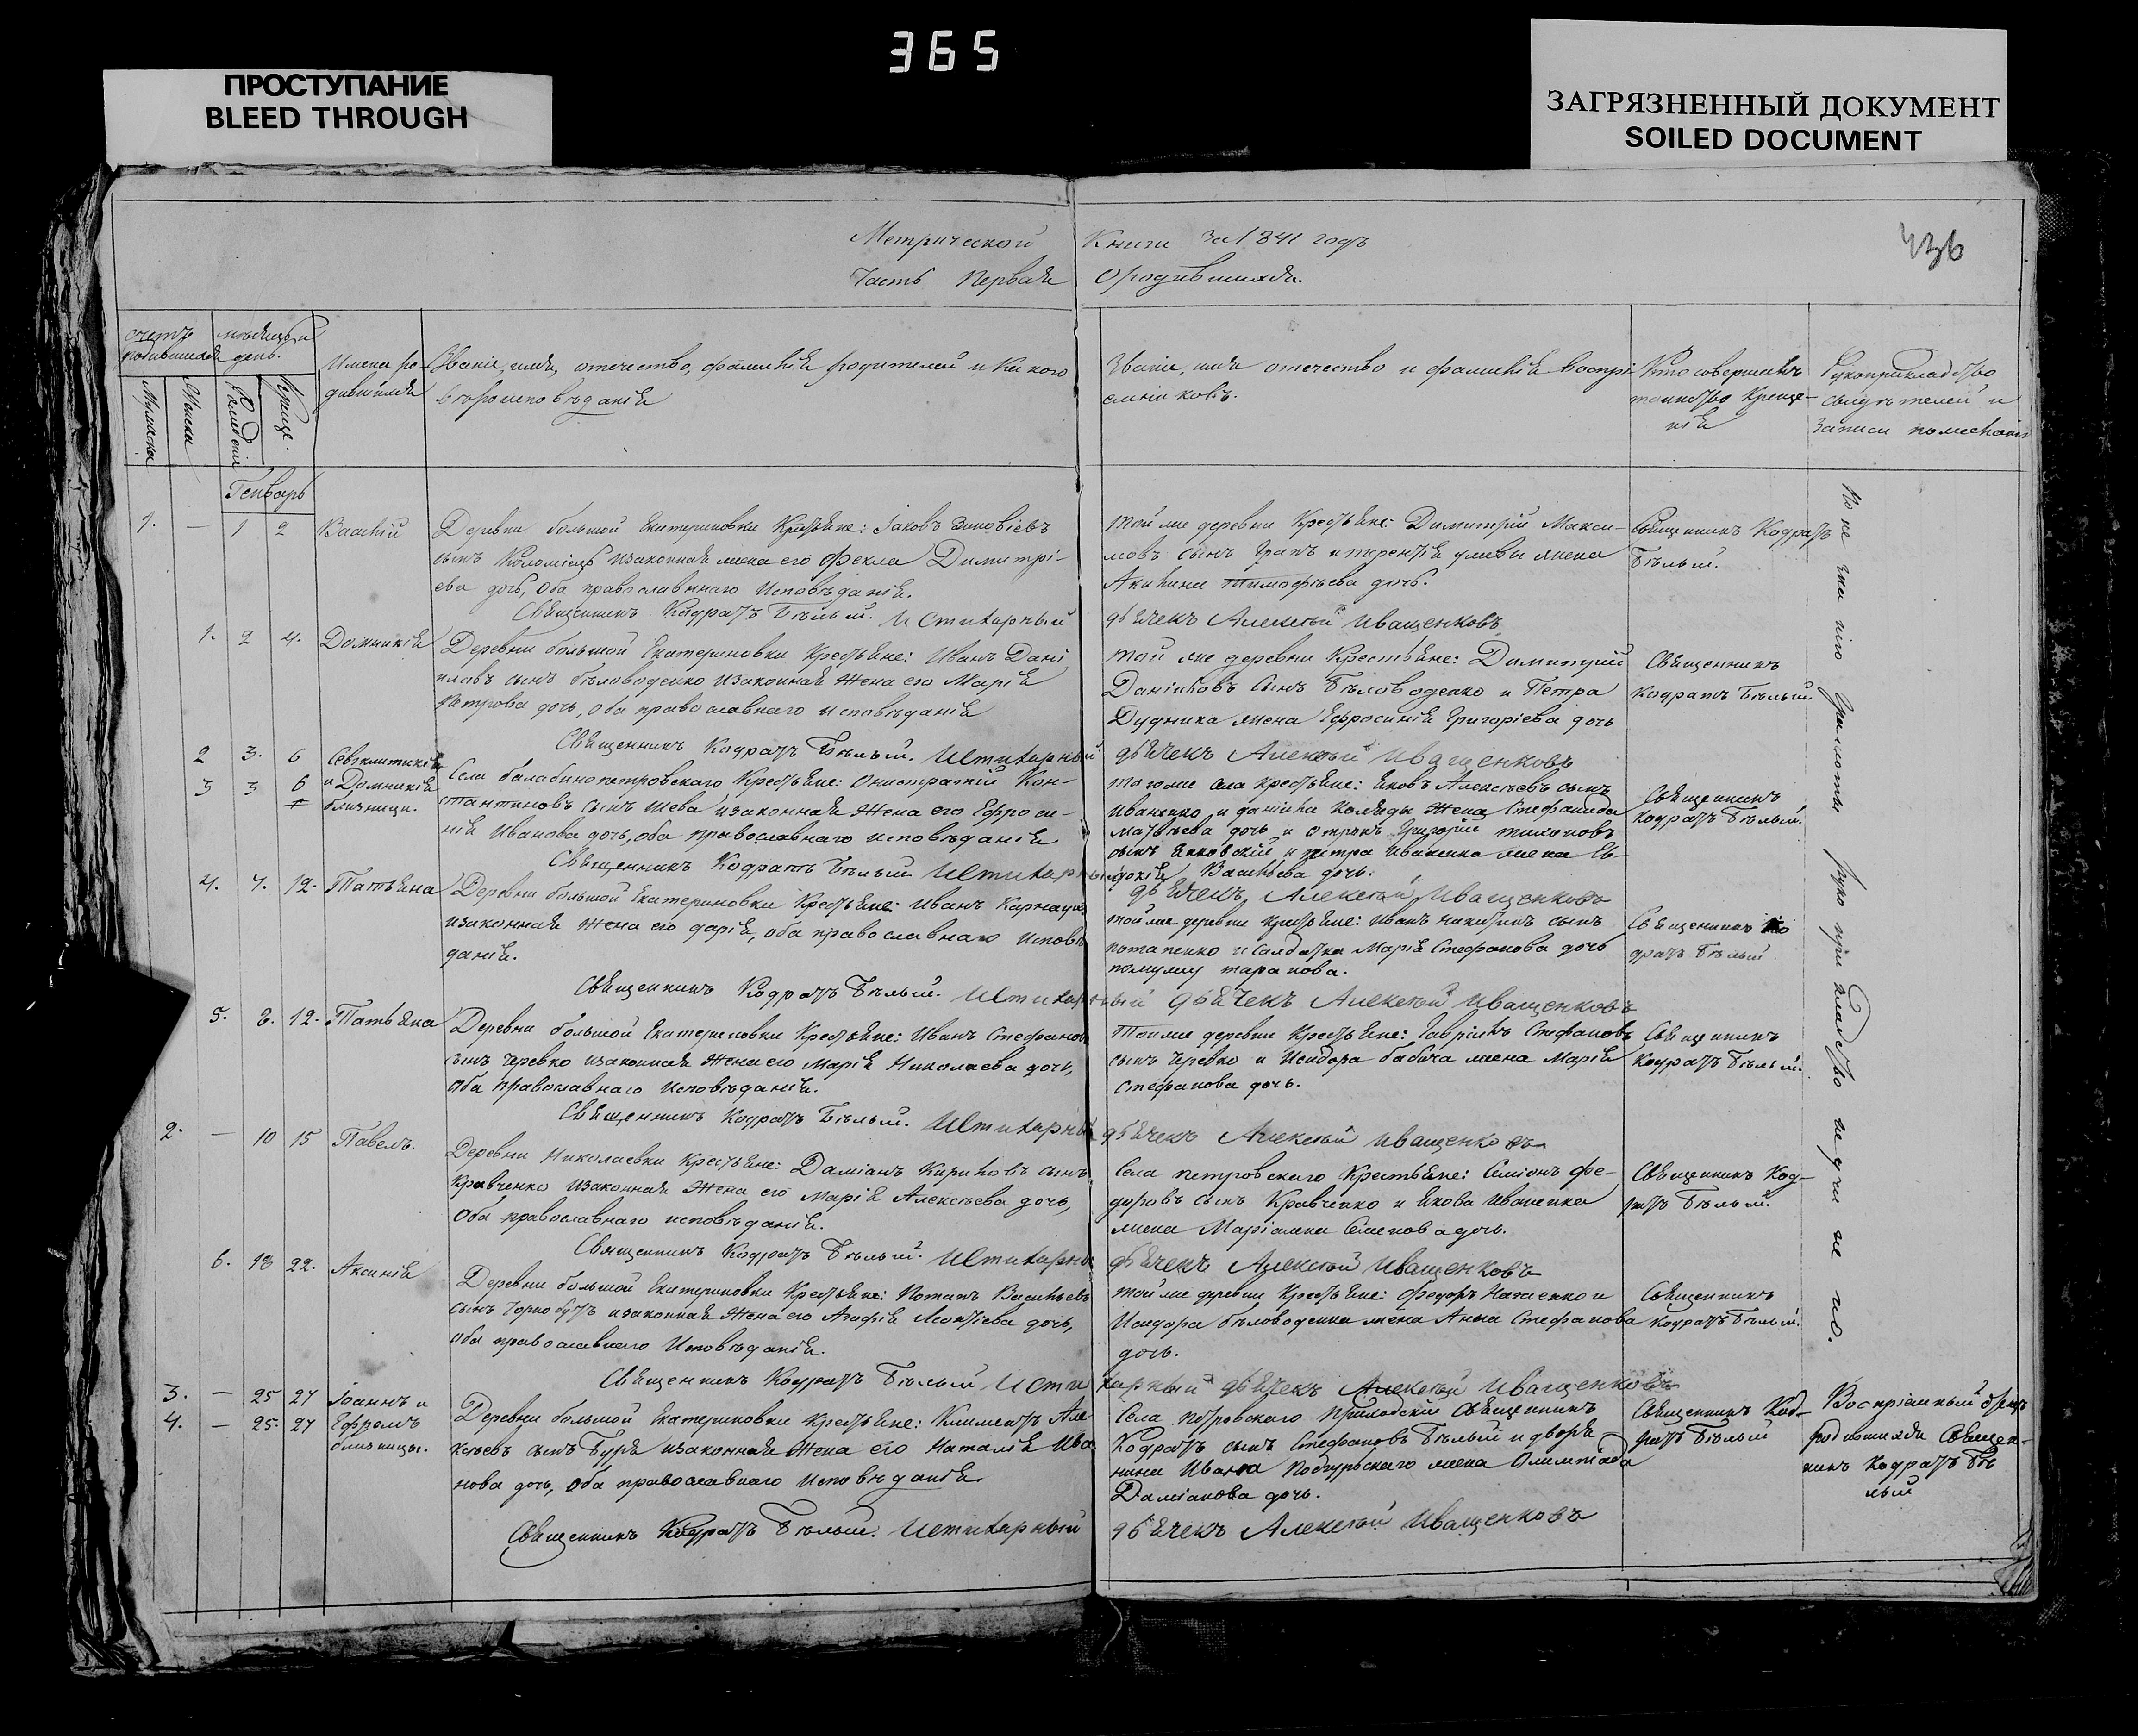 365
ПРОСТУПАНИЕ
BLEED THROUGH
ЗАГРЯЗНЕННЫЙ ДОКУМЕНТ
SOILED DOCUMENT
436
Метрической Книги За 1841 годъ
Часть Первая О родившихся.
счетъ родившихся
мѣсяцъ и день.
Мужеска
Женска
Рожденія
Креще.
Имена родившихся
Званіе, имя, отечество, фамилія родителей и какого
вѣроисповѣданія
Званіе, имя отечество и фамилія воспрі-
емниковъ.
Кто совершалъ
таинство Креще-
нія
Рукоприкладство
свидѣтелей и
записи
Генварь
1. — 1 2 Василій
Деревни большой Екатериновки Крестьяне: Іаковъ Зиновіевъ
сынъ Коломіецъ и законная жена его Фекла Димитрі-
ева дочь, оба православнаго Исповѣданія.
той же деревни Крестьяне: Димитрій Макси-
мовъ сынъ жена
Акилина Тимофѣева дочь.
Священникъ Кодратъ
Бѣлый.
Священникъ Кодратъ Бѣлый. Истихарный дьячекъ Алексѣй Иващенковъ
1. 2 4. Домникія
Деревни большой Екатериновки Крестьяне: Иванъ Дані
иловъ сынъ бѣловоденко и законная Жена его Марія
Петрова дочь, оба православнаго исповѣданія
той же деревни Крестьяне: Димитрій
Даніиловъ Сынъ Бѣловоденко и Петра
Дудника жена Ефросинія Григоріева дочь
Священникъ
Кодратъ Бѣлый.
Священникъ Кодратъ Бѣлый. Истихарный дьячекъ Алексѣй Иващенковъ
2 3. 6
3 3 6 и Домникія
близници.
Села балабинопетровскаго Крестьяне: Онистратій Кон-
стантиновъ сынъ Шева и законная Жена его Ефроси-
нія Иванова дочь, оба православнаго исповѣданія
того же села крестьяне: Яковъ Алексѣевъ сынъ
Иваненко и Даніила Коляды Жена Стефанида
Матвѣева дочь и Григорій тихоновъ
сынъ Янковскій и петра Иваненка жена Ев-
докія Васильева дочь.
Священникъ
Кодратъ Бѣлый.
Священникъ Кодратъ Бѣлый Истихарный дьячекъ, Алексѣй Иващенковъ
4. 7. 12. Татьяна
Деревни большой Екатериновки Крестьяне: Иванъ Карнаухъ
и законная Жена его дарія, оба православнаго исповѣ
данія.
той же деревни крестьяне: Иванъ никитинъ сынъ
потапенко и Салдатка Марія Стефанова дочь
помужу таранова.
Священникъ Ко
дратъ Бѣлый
Священникъ Кодратъ Бѣлый. Истихарный дьячекъ Алексѣй Иващенковъ
5. 8. 12. Татьяна
Деревни большой Екатериновки Крестьяне: Иванъ Стефановъ
сынъ Черевко и законная Жена его Марія Николаева дочь,
оба православнаго исповѣданія.
Той же деревни Крестьяне: Гавріилъ Стефановъ
сынъ Черевко и Исидора бабича жена Марія
Стефанова дочь.
Священникъ
Кодратъ Бѣлый.
Священникъ Кодратъ Бѣлый. Истихарный дьячекъ Алексѣй Иващенковъ
2. — 10 15 Павелъ.
Деревни Николаевки Крестьяне: Даміанъ Кириловъ сынъ
Кравченко и законная Жена его Марія Алексѣева дочь,
Оба православнаго исповѣданія.
Села петровскаго Крестьяне: Симіонъ фе-
доровъ сынъ Кравченко и Якова Иваненка
жена Маріамна Семенова дочь.
Священникъ Код-
ратъ Бѣлый.
Священникъ Кодратъ Бѣлый. Истихарный дьячекъ Алексѣй Иващенковъ
6. 18 22. Аксинія
Деревни большой Екатериновки Крестьяне: Потапъ Васильевъ
сынъ и законная Жена его Агафія Леонтіева дочь,
оба православнаго Исповѣданія.
той же деревни Крестьяне: Федоръ Нагаенко и
Исидора бѣловоденка жена Анна Стефанова
дочь.
Священникъ
Кодратъ Бѣлый.
Священникъ Кодратъ Бѣлый Истихарный дьячекъ Алексѣй Иващенковъ
3. — 25 27 Іоаннъ и
4. — 25 27 Ефремъ
близницы.
Деревни большой Екатериновки Крестьяне: Климентъ Але
ксѣевъ сынъ Буря и законная Жена его Наталія Ива
нова дочь, оба православнаго исповѣданія
Села петровскаго приходскій Священникъ
Кодратъ сынъ Стефановъ Бѣлый и дворя
нина Ивана Подгурскаго жена Олимпіада
Даміанова дочь.
Священникъ Код-
ратъ Бѣлый
Воспріемный
Священ-
никъ Кодратъ Бѣ
лый
Священникъ Кодратъ Бѣлый. Истихарный дьячекъ Алексѣй Иващенковъ
По незнанію грамоты рукоприкладство не учинено.